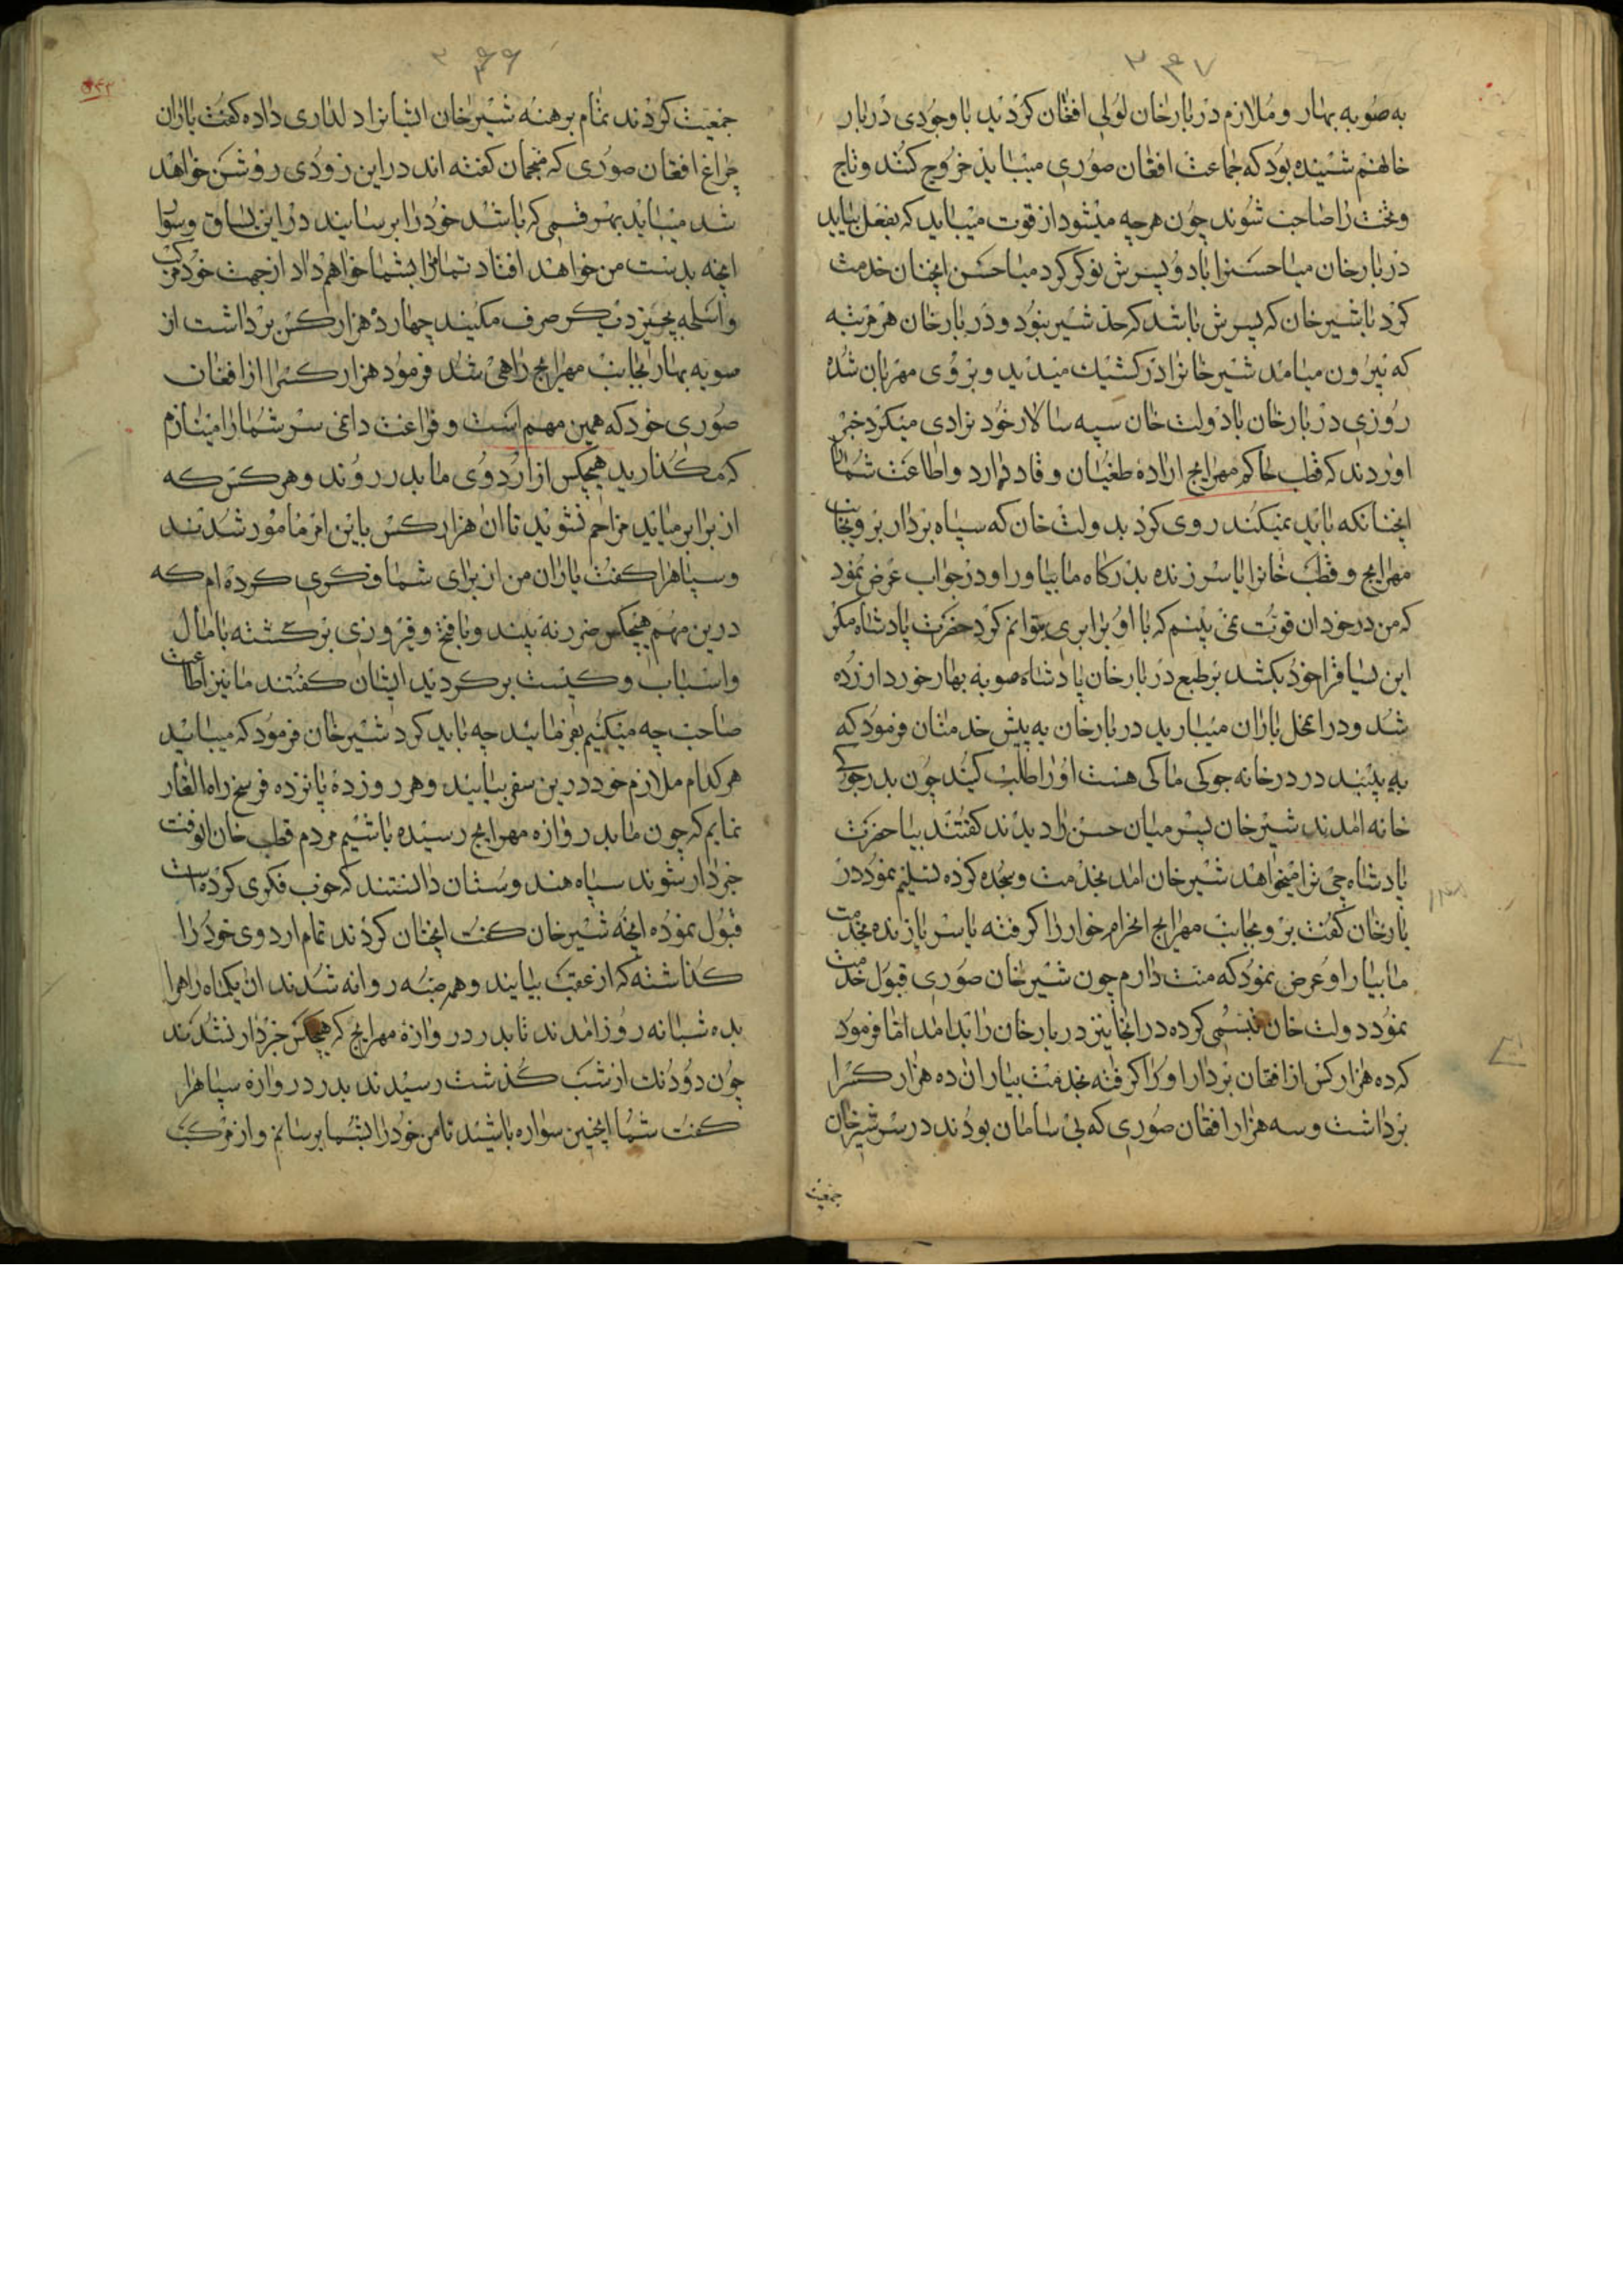 ۳۴۷
به صوبه بهار و ملازم دربارخان لولی افغان کردید باوجودی دربار
خانهم شنیده بود که جماعت افغان صوری میباید خروج کنند و تاج
و تخت را صاحب شوند چون هرچه میشود از قوت میباید که بفعل بیاید
دربارخان میا حسنرا با دو پسرش نوکر کرد میا حسن انچنان خدمت
کرد تا شیرخان که پسرش باشد که حد شیر بنود و دربارخان هر مرتبه
که بیرون میامد شیرخانرا در کشیک میدید و بر وی مهربان شده
روزی دربارخان با دولت خان سپه سالار خود نرادی میکرد خبر
اوردند که قطب حاکم مهرایج اراده طغیان و فاد دارد و اطاعت شمارا
انچنانکه باید نمیکند روی کرد بدولت خان که سپاه بردار برو بجانب
مهرایج و قطب خانرا یا سر زنده بدرکاه ما بیاور او در جواب عرض نمود
که من در خود ان قوت نمی بینم که با او برابری بتوانم کرد حضرت پادشاه مکر
این بسیاقرا خود بکشد بر طبع دربارخان پادشاه صوبه بهار خورد ازرده
شد و در انمحل باران میبارید دربارخان به پیش خدمتان فرمود که
به بینید در درخانه جوکی ما کی هست اورا طلب کیند چون بدر جوکی
خانه امدند شیرخان پسر میان حسن را دیدند کفتند بیا حضرت
پادشاه جی ترا میخواهد شیرخان امد بخدمت و سجده کرده تسلیم نمود در
بارخان کفت برو بجانب مهرایج انحرام خوار را کرفته یا سر یا زنده بخدمت
ما بیار او عرض نمود که منت دارم چون شیرخان صوری قبول خدمت
نمود دولت خان تبسمی کرده در انجا نیز دربارخان را بد امد اما فرمود
که ده هزار کس از افغان بردار او را کرفته بخدمت بیار ان ده هزار کسرا
برداشت و سه هزار افغان صوری که بی سامان بودند در سر شیرخان
جمعیت
۳۴۶
جمعیت کردند تمام برهنه شیرخان ایشانرا دلداری داده کفت یاران
چراغ افغان صوری که منجمان کفته اند در این زودی روشن خواهد
شد میباید بهر قسمی که باشد خود را برسانید در این یساق و
انچه بدست من خواهد افتاد تمامرا بشما خواهم داد از جهت خود مرکب
و اسلحه بچیز دیکر صرف مکیند چهارده هزار کس برداشت از
صوبه بهار بجانب مهرایج راهی شد فرمود هزار کسرا از افغان
صوری خود که همین مهم است و فراغت داغی سر شما را مینازم
که مکذارید هیچکس از اردوی ما بدر روند و هر کس که
از برابر میاید مزاحم نشوید تا ان هزار کس باین امر مامور شدند
و سپاهرا کفت یاران من از برای شما فکری کرده ام که
درین مهم هیچکس ضرر نه بیند و با فتح و فیروزی برکشته با مال
و اسباب و کنیت برکردید ایشان کفتند ما نیز اطاعت
صاحب چه میکنیم بفرمائید چه باید کرد شیرخان فرمود که میباید
هر کدام ملازم خود درین سفر بیایند و هر روز ده پانزده فرسخ راه الغار
نمایم که چون ما بدروازه مهرایج رسیده باشیم مردم قطب خان انوقت
خبردار شوند سپاه هندوستان دانستند که خوب فکری کرده است
قبول نموده انچه شیرخان کفت انچنان کردند تمام اردوی خود را
کذاشته که از عقب بیایند و همه جبه روانه شدند ان یکماه راهرا
بده شبانه روز امدند تا بدر دروازه مهرایج که هیچکس خبردار نشدند
چون دو دنک از شب کذشت رسیدند بدر دروازه سپاهرا
کفت شما انچنین سواره باشید تا من خود را بشما برسانم و از مرکب